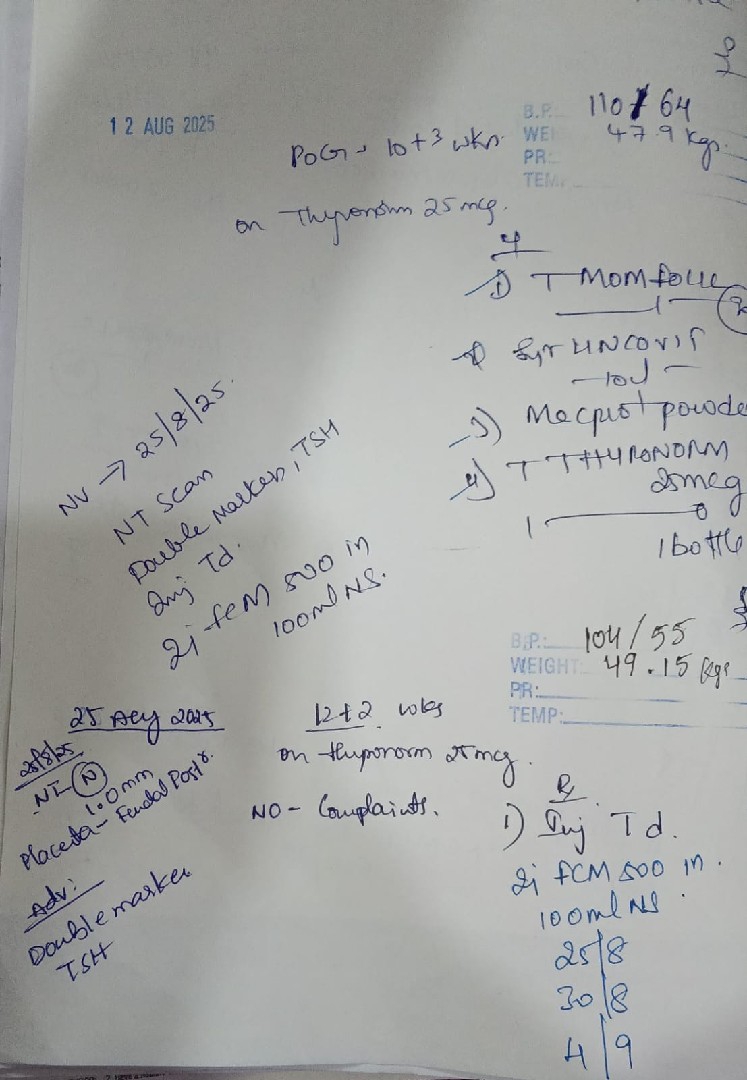 12 AUG 2025
B.P. 110/64
POG → 10+3 wks.
WEI 47.9 Kgs.
PR:
TEM
on Thyronorm 25 mcg.
1) T MOMFOLIC
Syr UNCOVIT
3) Macprot powde
4) T THYRONORM
25mcg
1 0
1 bottle
NV → 25/8/25.
NT Scan
Double Marker, TSH
Inj Td.
2i FCM 500 in
100ml NS.
B.P.: 104/55
WEIGHT 49.15 Kgs
PR:
TEMP:
25 Aug 2025
12+2 wks
on thyronorm 25mcg.
NO - Complaints.
25/8/25
NT- N
1.0mm
Placenta - Fundal Postr.
Adv:
Double marker
TSH
Rx
1) Inj Td.
2i FCM 500 in.
100ml NS.
25/8
30/8
4/9